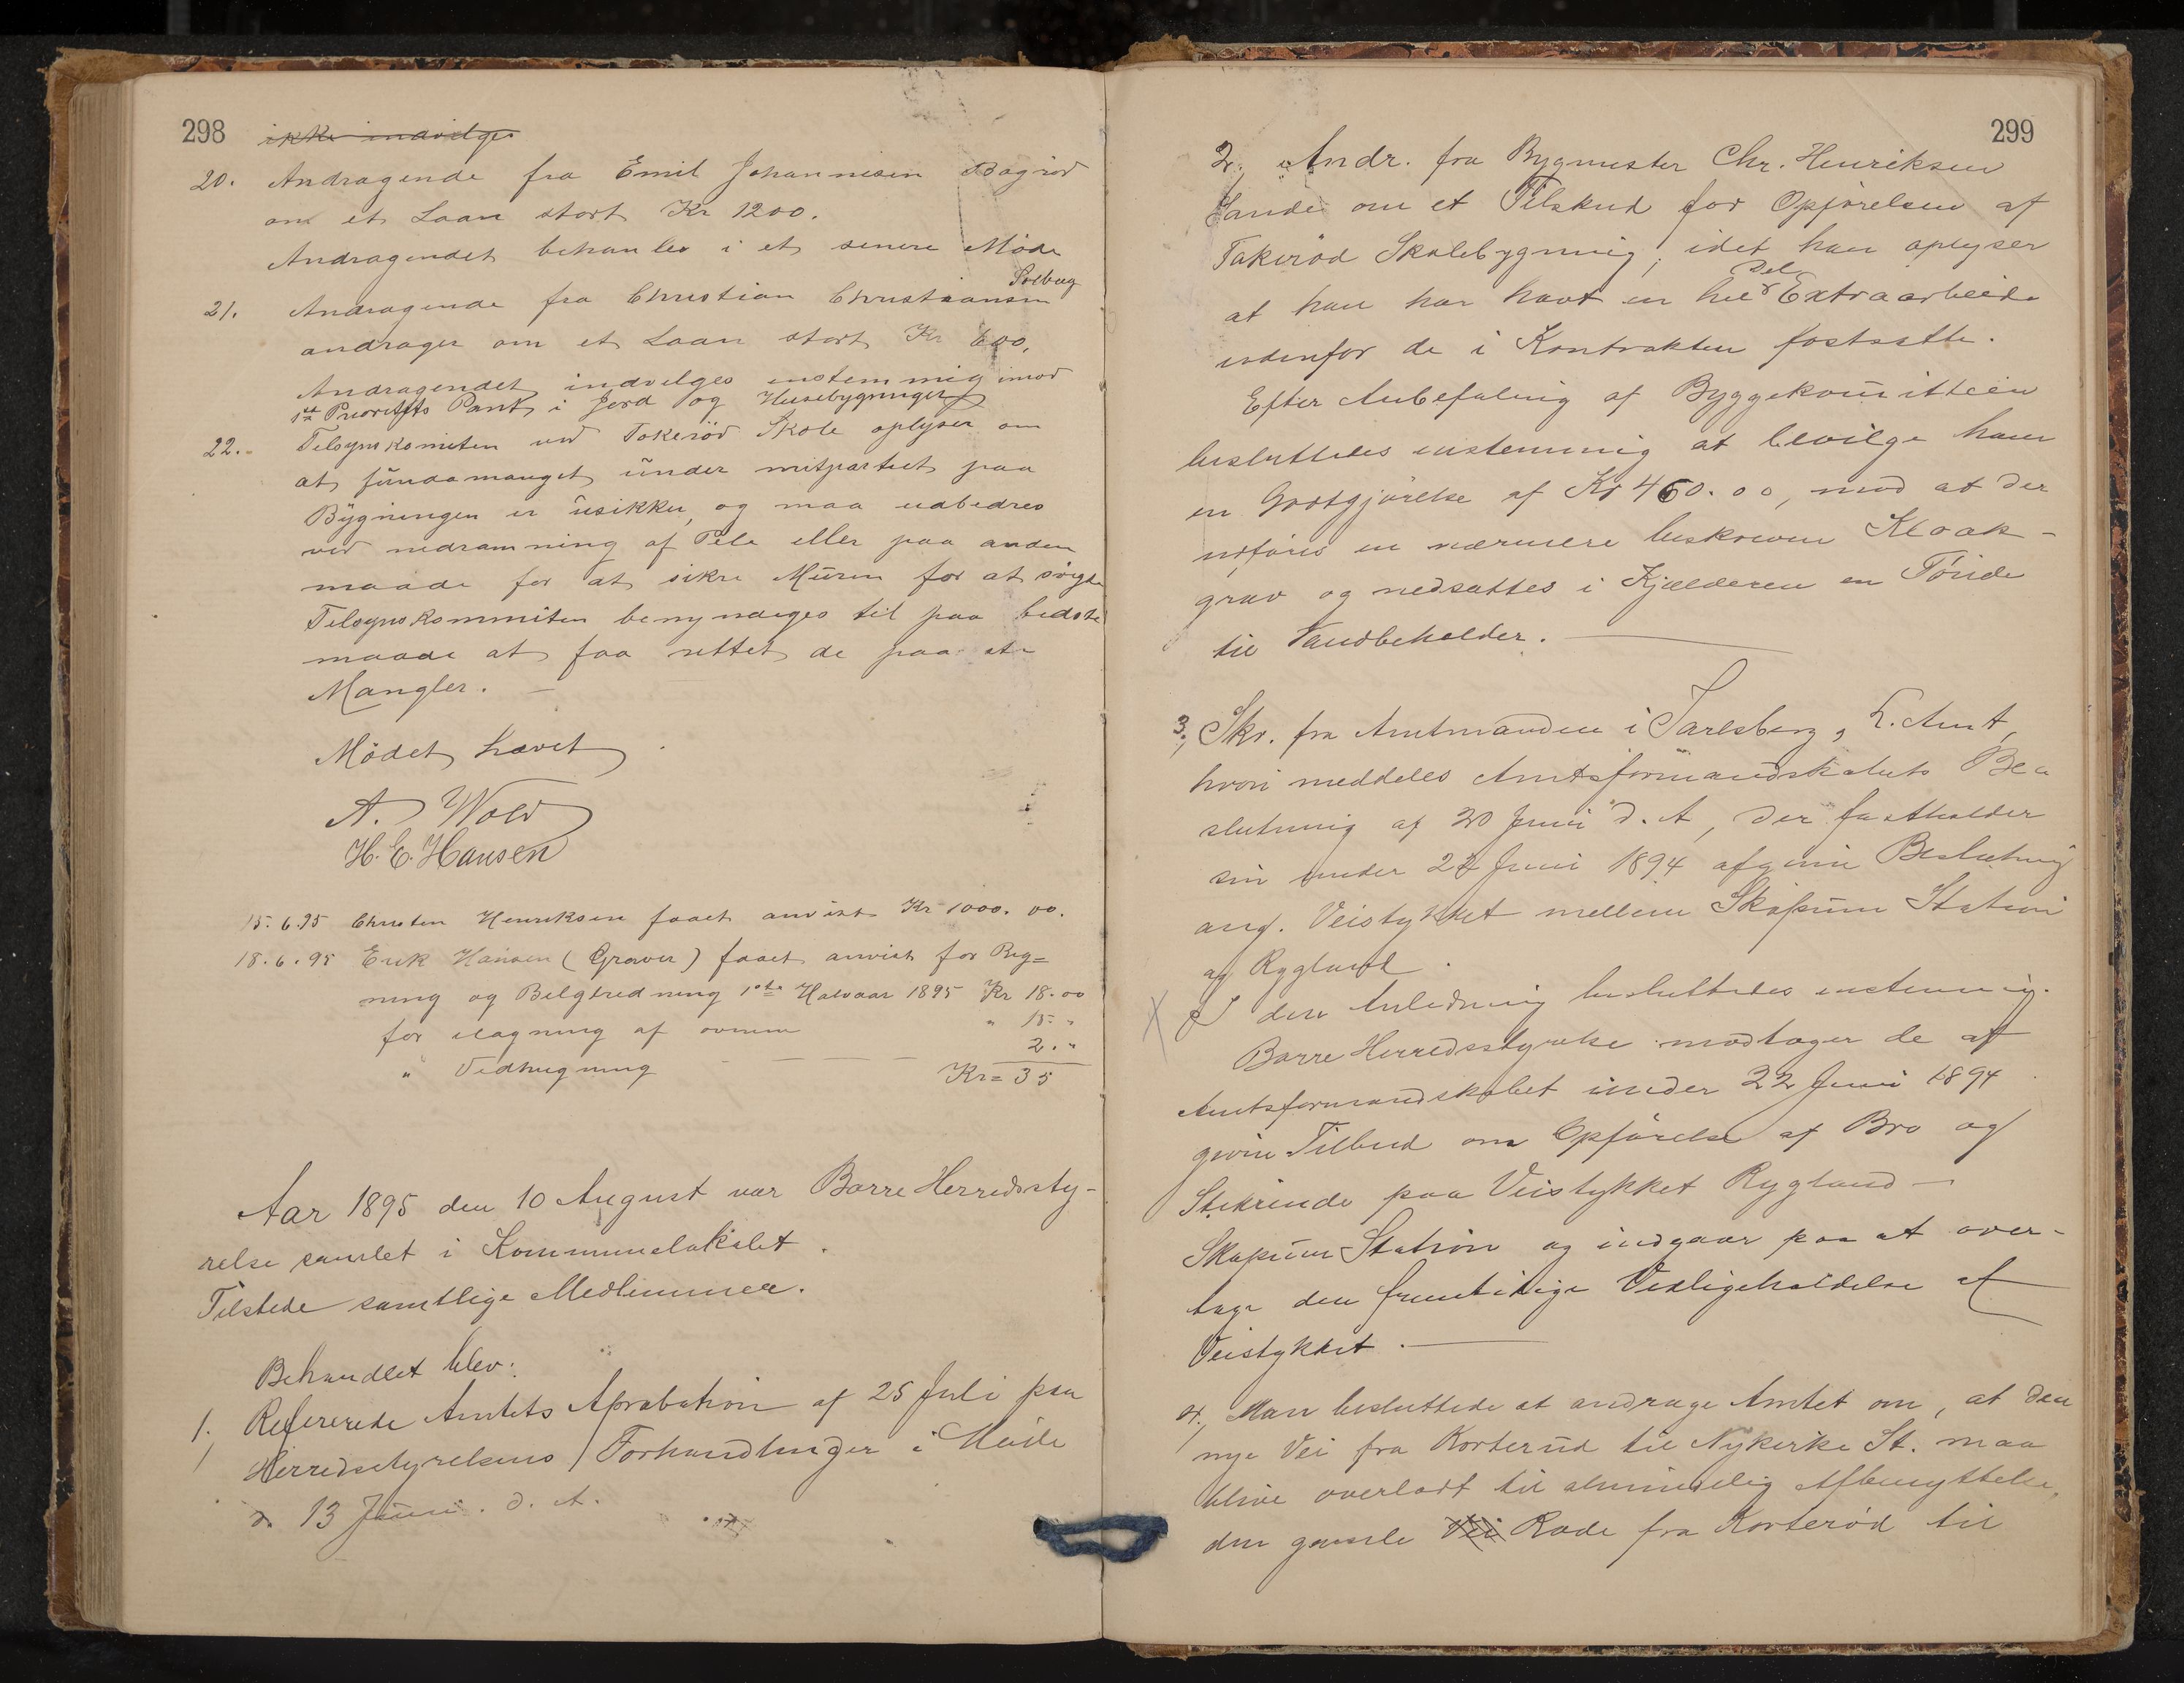 298
ikke indvilges
20. Andragende fra Emil Johannesen Bagrød
om et Laan stort Kr 1200.
Andragendet behanles i et senere Møde
Solbug
21. Andragende fra Christian Christiansen
andrager om et Laan stort Kr 600,
Andragendet indvilges enstemmig imod
1ste Prioritets Pant i Jord og Husebygninger
22. Tilsynskomiten ved Tokerød Skole oplyser om
at fundamanget under mitpartiet paa
Bygningen er usikker, og maa udbedres
ved nedramning af Pele eller paa anden
maade for at sikre Muren for at
Tilsynskommiten bemyndiges til paa bedste
maade at faa rettet de
Mangler. –
Mødet hævet.
A. Wold
H. E. Hansen
15.6.95 Christen Henriksen faaet anvist Kr 1000.00.
18.6.95 Erik Hansen (Graver) faaet anvist for Rig=
ning og Belgtredning 1ste Halvaar 1895 Kr 18.00
for ilagning af ovnene " 15. "
" Vedhugning 2. "
Kr = 35
Aar 1895 den 10 August var Borre Herredssty-
relse samlet i Kommunelokalet.
Tilstede samtlige Medlemmer.
Behandlet blev:
1. Refererede Amtets Aprobation af 25 Juli paa
Herredsstyrelsens Forhandlinger i Møde
d. 13 Juni d. A.
299
2. Andr. fra Bygmester Chr. Henriksen
Sande om et Tilskud for Opførelsen af
Takerød Skolebygning, idet han oplyser
Del
at han har havt en hel Extraarbeide
udenfor de i Kontrakten fastsatte.
Efter Anbefaling af Byggekomitteen
besluttedes enstemmig at bevilge ham
en Godtgjørelse af Kr 460.00, mod at der
udføres en nærmere beskreven Kloak-
grav og nedsættes i Kjælderen en Tønde
til Vandbeholder.
3. Skr. fra Amtmanden i Jarlsberg, L. Amt,
hvori meddeles Amtsformandskabets Be-
slutning af 20 Juni d. A, der fastholder
sin under 22 Juni 1894 afgivne Beslutning
ang. Veistykket mellem Skopum Station
og Rygland.
X I den Anledning besluttedes enstemmig.
Borre Herredsstyrelse modtager de af
Amtsformandskabet under 22 Juni 1894
givne Tilbud om Opførelse af Bro og
Stikrende paa Veistykket Rygland –
Skopum Station og indgaar paa at over-
tage den fremtidige Vedligeholdelse af
Veistykket.
4. Man besluttede at andrage Amtet om, at den
nye Vei fra Korterud til Nykirke St. maa
blive overladt til almindelig Afbenyttelse,
den gamle Vei Rode fra Korterød til